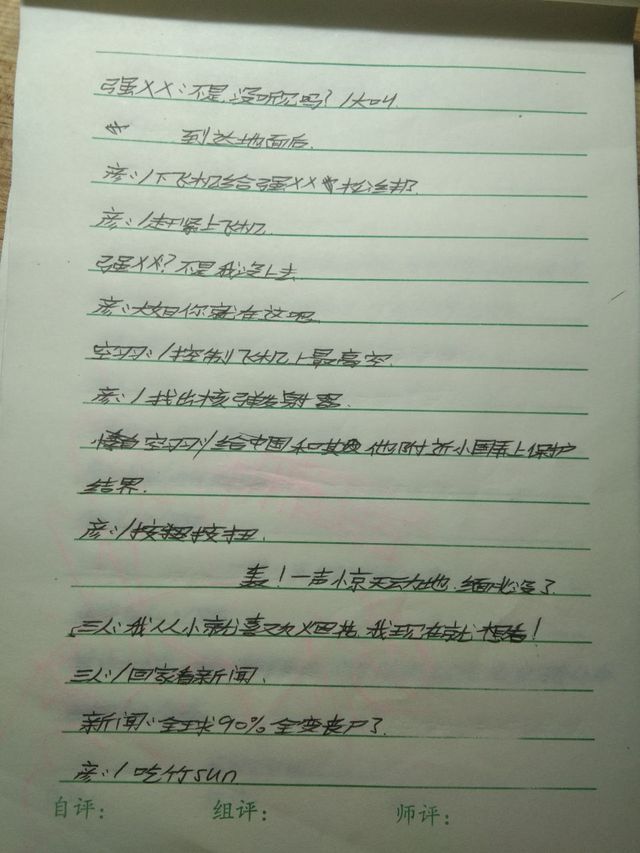 强XX:不是,没听见吗?/大叫
到达地面后.
彦:/下飞机给强XX松绑.
彦:/赶紧上飞机.
强XX?不是我没上去
彦:大姐你就在这吧.
空习习:/控制飞机上最高空.
彦:/找出核弹发射器.
空习习/给中国和其他附近小国罩上保护
结界.
彦:/按钮按钮.
轰!一声惊天动地,缅北没了
三人:我从小就喜欢烟花,我现在就想看!
三人:/回家看新闻.
新闻:全球90%全变丧尸了.
彦:/吃竹sun
自评: 组评: 师评: